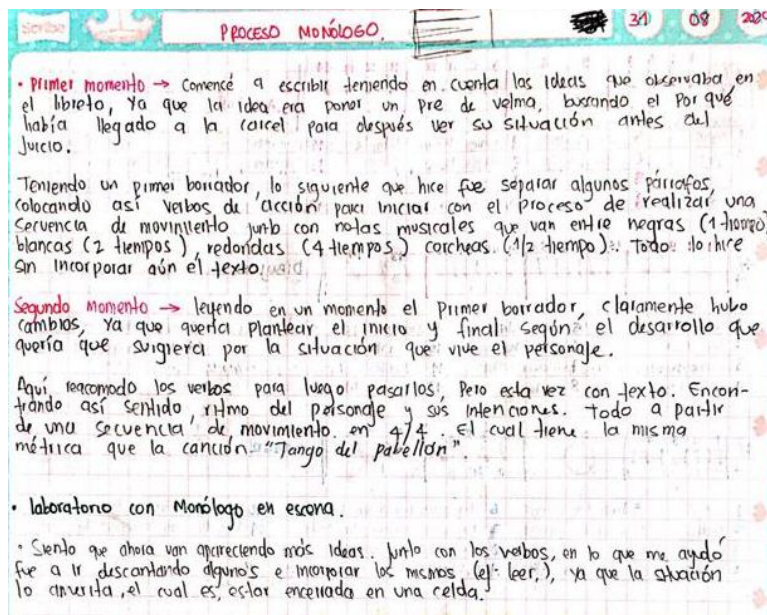 Scribe
PROCESO MONÓLOGO.
31 08 202
• Primer momento → Comencé a escribir teniendo en cuenta las ideas que observaba en
el libreto, ya que la idea era poner un pre de velma, buscando el por qué
había llegado a la carcel para después ver su situación antes del
Juicio.
Teniendo un primer borrador, lo siguiente que hice fue separar algunos párrafos,
colocando así verbos de acción para iniciar con el proceso de realizar una
secuencia de movimiento junto con notas musicales que van entre negras (1 tiempo)
blancas (2 tiempos), redondas (4 tiempos) corcheas (1/2 tiempo). Todo lo hice
sin incorporar aún el texto.
Segundo momento → leyendo en un momento el primer borrador, claramente hubo
cambios, ya que quería plantear el inicio y final según el desarrollo que
quería que surgiera por la situación que vive el personaje.
Aquí reacomodo los verbos para luego pasarlos, pero esta vez con texto. Encon-
trando así sentido, ritmo del personaje y sus intenciones. todo a partir
de una secuencia de movimiento en 4/4. El cual tiene la misma
métrica que la canción "Tango del pabellón".
• laboratorio con Monólogo en escena.
• Siento que ahora van apareciendo más ideas. Junto con los verbos, en lo que me ayudó
fue a ir descartando algunos e incorporar los mismos, (ej: leer,), ya que la situación
lo amerita, el cual es, estar encerrada en una celda.